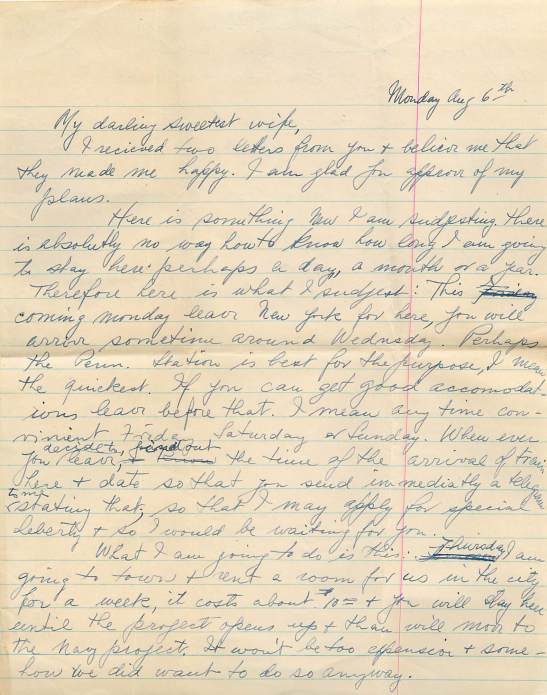 Monday Aug 6th
My darling sweetest wife,
I recieved two letters from you + believe me that
they made me happy. I am glad you approve of my
plans.
Here is something new I am sudjesting. There
is absolutly no way how to know how long I am going
to stay here perhaps a day, a month or a year.
Therefore here is what I sudjest: This Friday
coming monday leave New York for here, you will
arrive sometime around Wednsday. Perhaps
the Penn. Station is best for the purpose, I mean
the quickest. If you can get good accomodat-
ions leave before that. I mean any time con-
vinient Friday Saturday or Sunday. When ever
you decide to leave, find out the time of the arrival of train
here + date so that you send immediatly a telegram
to me stating that, so that I may apply for special
leberty + so I would be waiting for you.
What I am going to do is this. Thursday I am
going to town + rent a room for us in the city
for a week, it costs about $10= + you will stay here
until the project opens up + than will move to
the Navy project. It won't be too expensive + some-
how we did want to do so anyway.